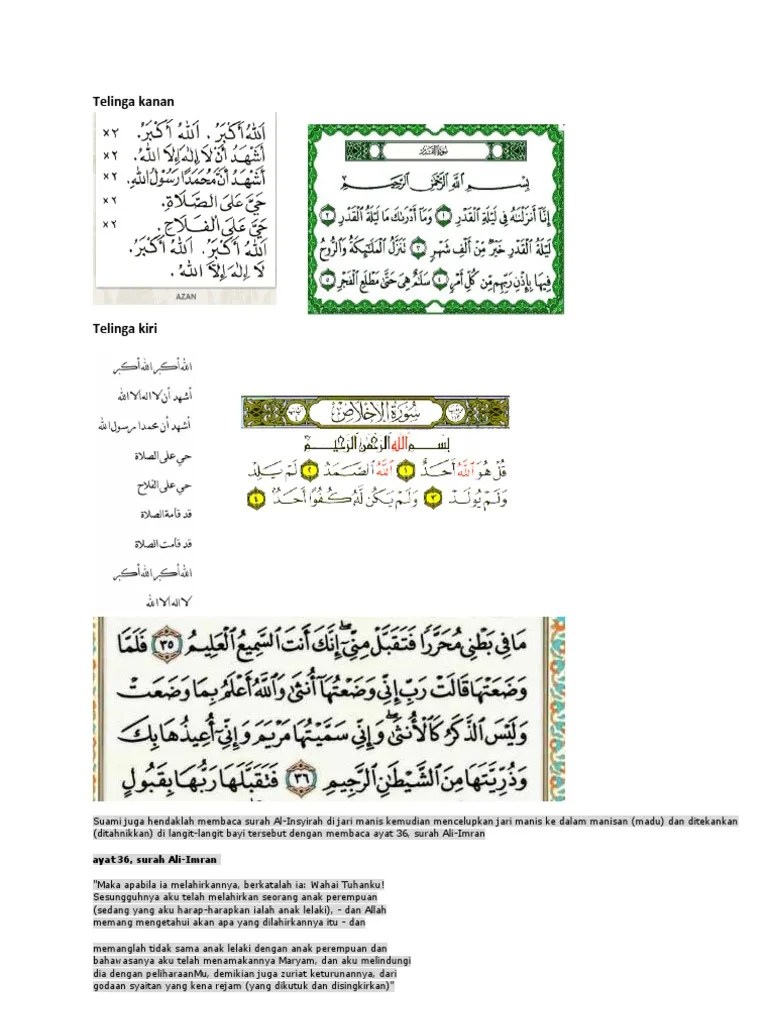 Telinga kanan
اَللهُ أَكْبَرُ . اَللهُ أَكْبَرُ. ×٢
أَشْهَدُ أَنْ لَا إِلٰهَ إِلَّا اللهُ. ×٢
أَشْهَدُ أَنَّ مُحَمَّدًا رَسُوْلُ اللهِ. ×٢
حَيَّ عَلَى الصَّلَاةِ. ×٢
حَيَّ عَلَى الْفَلَاحِ. ×٢
اَللهُ أَكْبَرُ . اَللهُ أَكْبَرُ.
لَا إِلٰهَ إِلَّا اللهُ.
AZAN
سُورَةُ الْقَدْرِ
بِسْمِ اللَّهِ الرَّحْمَٰنِ الرَّحِيمِ
إِنَّا أَنزَلْنَٰهُ فِي لَيْلَةِ الْقَدْرِ ١ وَمَا أَدْرَىٰكَ مَا لَيْلَةُ الْقَدْرِ ٢
لَيْلَةُ الْقَدْرِ خَيْرٌ مِّنْ أَلْفِ شَهْرٍ ٣ تَنَزَّلُ الْمَلَٰٓئِكَةُ وَالرُّوحُ
فِيهَا بِإِذْنِ رَبِّهِم مِّن كُلِّ أَمْرٍ ٤ سَلَٰمٌ هِيَ حَتَّىٰ مَطْلَعِ الْفَجْرِ ٥
Telinga kiri
الله أكبر الله أكبر
أشهد أن لا اله الا الله
أشهد أن محمدا رسول الله
حي على الصلاة
حي على الفلاح
قد قامة الصلاة
قد قامت الصلاة
الله أكبر الله أكبر
لا اله الا الله
سُورَةُ الإِخْلَاصِ
بِسْمِ اللَّهِ الرَّحْمَٰنِ الرَّحِيمِ
قُلْ هُوَ اللَّهُ أَحَدٌ ١ اللَّهُ الصَّمَدُ ٢ لَمْ يَلِدْ
وَلَمْ يُولَدْ ٣ وَلَمْ يَكُن لَّهُ كُفُوًا أَحَدٌ ٤
مَا فِي بَطْنِي مُحَرَّرًا فَتَقَبَّلْ مِنِّيٓ ۖ إِنَّكَ أَنتَ السَّمِيعُ الْعَلِيمُ ٣٥ فَلَمَّا
وَضَعَتْهَا قَالَتْ رَبِّ إِنِّي وَضَعْتُهَآ أُنثَىٰ وَاللَّهُ أَعْلَمُ بِمَا وَضَعَتْ
وَلَيْسَ الذَّكَرُ كَالْأُنثَىٰ ۖ وَإِنِّي سَمَّيْتُهَا مَرْيَمَ وَإِنِّيٓ أُعِيذُهَا بِكَ
وَذُرِّيَّتَهَا مِنَ الشَّيْطَٰنِ الرَّجِيمِ ٣٦ فَتَقَبَّلَهَا رَبُّهَا بِقَبُولٍ
Suami juga hendaklah membaca surah Al-Insyirah di jari manis kemudian mencelupkan jari manis ke dalam manisan (madu) dan ditekankan
(ditahnikkan) di langit-langit bayi tersebut dengan membaca ayat 36, surah Ali-Imran
ayat 36, surah Ali-Imran
"Maka apabila ia melahirkannya, berkatalah ia: Wahai Tuhanku!
Sesungguhnya aku telah melahirkan seorang anak perempuan
(sedang yang aku harap-harapkan ialah anak lelaki), - dan Allah
memang mengetahui akan apa yang dilahirkannya itu - dan
memanglah tidak sama anak lelaki dengan anak perempuan dan
bahawasanya aku telah menamakannya Maryam, dan aku melindungi
dia dengan peliharaanMu, demikian juga zuriat keturunannya, dari
godaan syaitan yang kena rejam (yang dikutuk dan disingkirkan)"